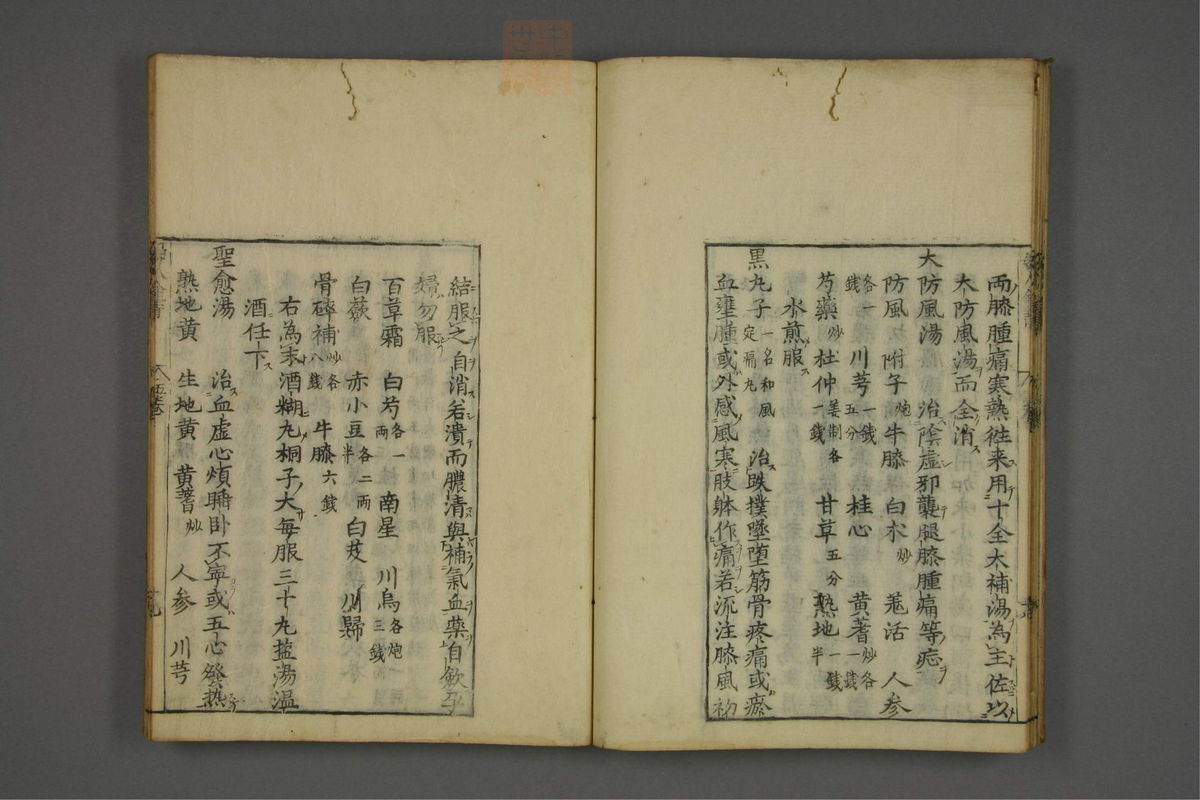 両膝腫痛寒熱往来用十全大補湯為主佐以
大防風湯而全消
大防風湯　治陰虚邪襲腿膝腫痛等症
防風　附子炮　牛膝　白朮炒　羌活　人参
各一銭　川芎一銭五分　桂心　黄蓍炒各一銭
芍藥炒　杜仲姜制各一銭　甘草五分　熟地一銭半
水煎服
黒九子一名和風定痛丸　治跌撲墜堕筋骨疼痛或瘀
血壅腫或外感風寒肢躰作痛若流注膝風初
結服之自消若潰而膿清與補氣血藥自歛孕
婦勿服
百草霜　白芍各一両　南星　川烏各炮三銭
白蘞　赤小豆各二両半　白芨　川歸
骨碎補炒各八銭　牛膝六銭
右為末酒糊丸桐子大毎服三十丸盐湯温
酒任下
聖愈湯　治血虚心煩睡卧不寧或五心發熱
熟地黄　生地黄　黄蓍炒　人参　川芎